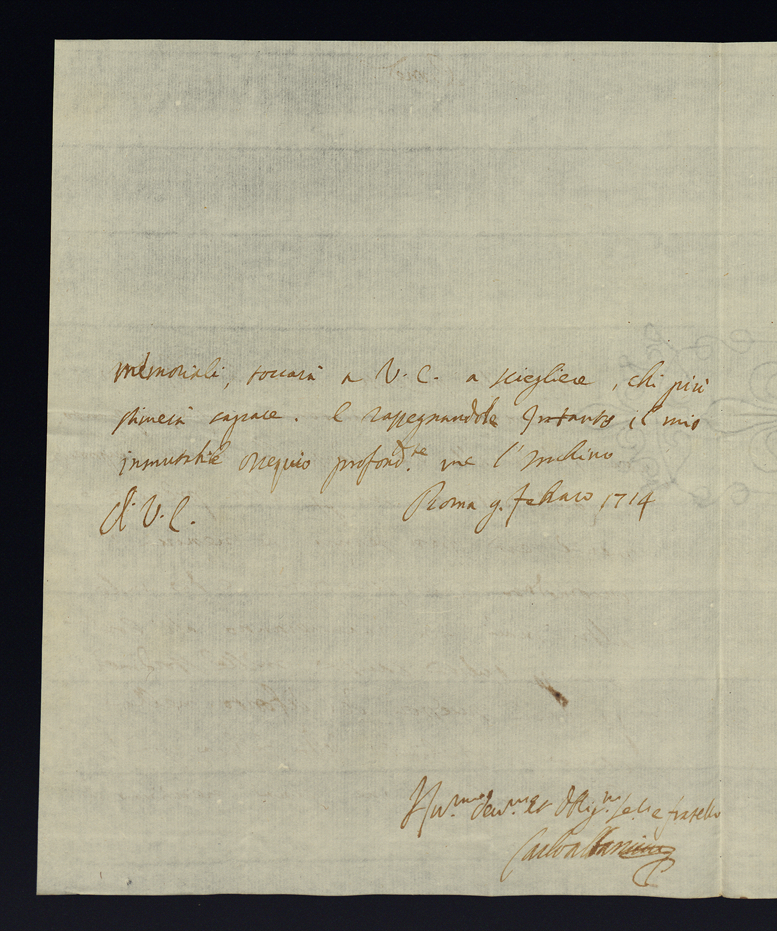 memoriali, toccarà a V. E. a sciegliere, chi più
stimerà capace. E rassegnandole Intanto il mio
immutabile ossequio profond.te me l'Inchino
di V. E. Roma 9. Febraro 1714
Hu.mo Dev.mo et Oblig.mo Ser.e e fratello
Carlo